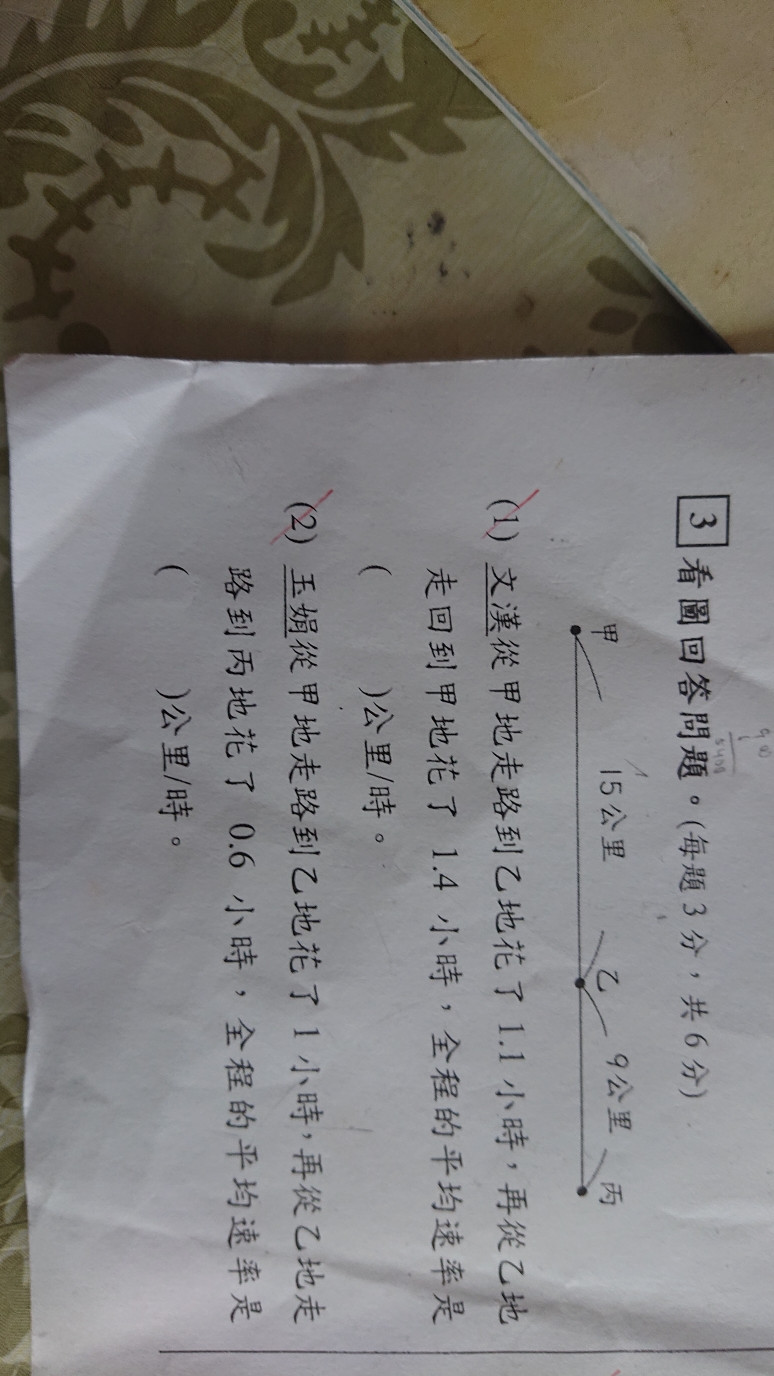 3 看圖回答問題。(每題3分,共6分)
甲 15公里 乙 9公里 丙
(1) 文漢從甲地走路到乙地花了1.1小時,再從乙地
走回到甲地花了1.4小時,全程的平均速率是
( )公里/時。
(2) 玉娟從甲地走路到乙地花了1小時,再從乙地走
路到丙地花了0.6小時,全程的平均速率是
( )公里/時。